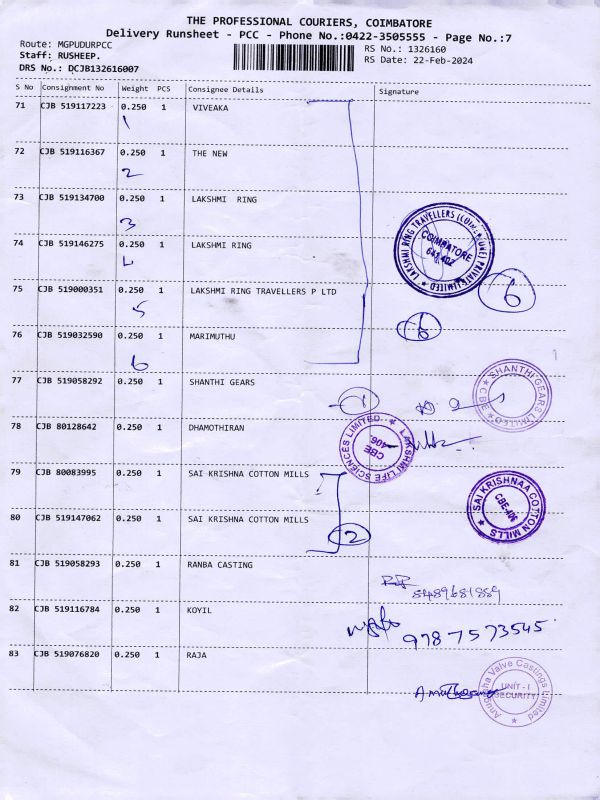 THE PROFESSIONAL COURIERS, COIMBATORE
Delivery Runsheet - PCC - Phone No.:0422-3505555 - Page No.:7
Route: MGPUDURPCC
RS No.: 1326160
Staff: RUSHEEP.
RS Date: 22-Feb-2024
DRS No.: DCJB132616007
S No Consignment No Weight PCS Consignee Details Signature
71 CJB 519117223 0.250 1 VIVEAKA
1
72 CJB 519116367 0.250 1 THE NEW
2
73 CJB 519134700 0.250 1 LAKSHMI RING
3
LAKSHMI RING TRAVELLERS (COIMBATORE) PRIVATE LIMITED
COIMBATORE
641 402
74 CJB 519146275 0.250 1 LAKSHMI RING
4
75 CJB 519000351 0.250 1 LAKSHMI RING TRAVELLERS P LTD
5
6
6
76 CJB 519032590 0.250 1 MARIMUTHU
6
77 CJB 519058292 0.250 1 SHANTHI GEARS
1
SHANTHI GEARS LIMITED
CBE
78 CJB 80128642 0.250 1 DHAMOTHIRAN
LAKSHMI LIFE SCIENCES LIMITED
CBE
-406
79 CJB 80083995 0.250 1 SAI KRISHNA COTTON MILLS
SAI KRISHNAA COTTON MILLS
CBE-406
80 CJB 519147062 0.250 1 SAI KRISHNA COTTON MILLS
2
81 CJB 519058293 0.250 1 RANBA CASTING
8489681889
82 CJB 519116784 0.250 1 KOYIL
9787573545
83 CJB 519076820 0.250 1 RAJA
Anugraha Valve Castings Limited
UNIT - I
SECURITY